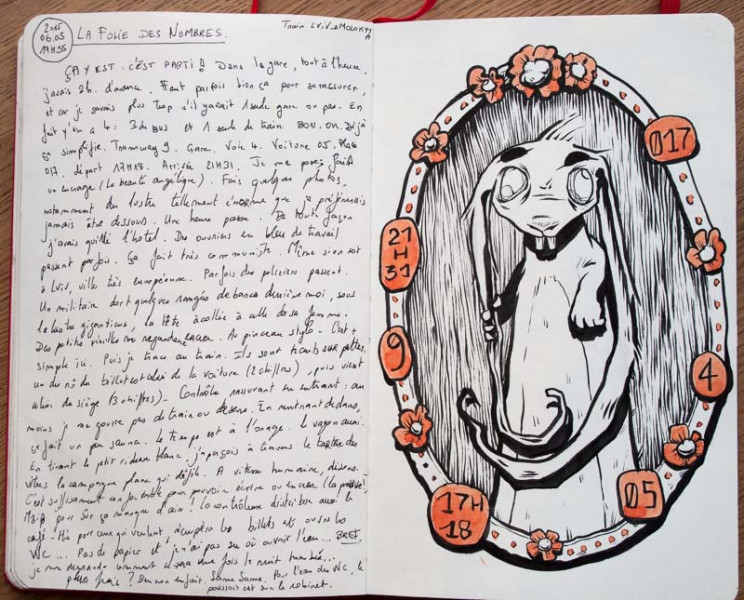 2015
06.05
17H55
LA FOLIE DES NOMBRES.
Train LVIV → MOLOKYIA
ÇA Y EST : C'EST PARTI ! Dans la gare, tout à l'heure,
j'avais 2h d'avance. Faut parfois bien ça pour se rassurer,
et car je savais plus trop s'il y avait 1 seule gare ou pas. En
fait y'en a 4 : 3 de BUS et 1 seule de train. BON. OK. Déjà
ça simplifie. Tramway 9. Gare. Voie 4. Voiture 05. Place
017. départ 17H18. Arrivée 21H31. Je me pose, finis
un encrage (la beauté angélique). Fais quelques photos,
notamment du lustre tellement énorme que je préférerais
jamais être dessous. Une heure passe. De toute façon
j'avais quitté l'hotel. Des ouvriers en bleu de travail
passent parfois. Ça fait très communiste. Même si on est
à Lviv, ville très européenne. Parfois des policiers passent.
Un militaire dort quelques rangées de bancs derrière moi, sous
le lustre gigantesque, la tête accolée à celle de sa femme.
Des petites vieilles me regardent encrer. Au pinceau stylo. C'est +
simple ici. Puis je trace au train. Ils sont tecnts sur
un du n° du billet est celui de la voiture (2 chiffres), puis vient
celui du siège (3 chiffres). Contrôle rassurant en entrant : au
moins je me goure pas de train ou de sens. En rentrant dedans,
ça fait un peu sauna. Le temps est à l'orage. Le wagon aussi.
En tirant le petit rideau blanc, j'aperçois à travers le tartre des
vitres la campagne plane qui défile. A vitesse humaine, disons.
C'est suffisamment pour pouvoir écrire ou encrer (la preuve)
Mais pour sûr ça manque d'air. la contrôleuse distribue aussi le
café-thé pour ceux qui veulent, récupère les billets et ouvre les
WC ... Pas de papier et j'n'ai pas su où ouvrir l'eau ... BREF.
je me demande comment ce sera une fois la nuit tombée...
plus frais ? Ben non en fait. Sauna Sauna. Pour l'eau des WC, le
poussoir est sur le robinet.
017
21
H
31
9
4
17H
18
05